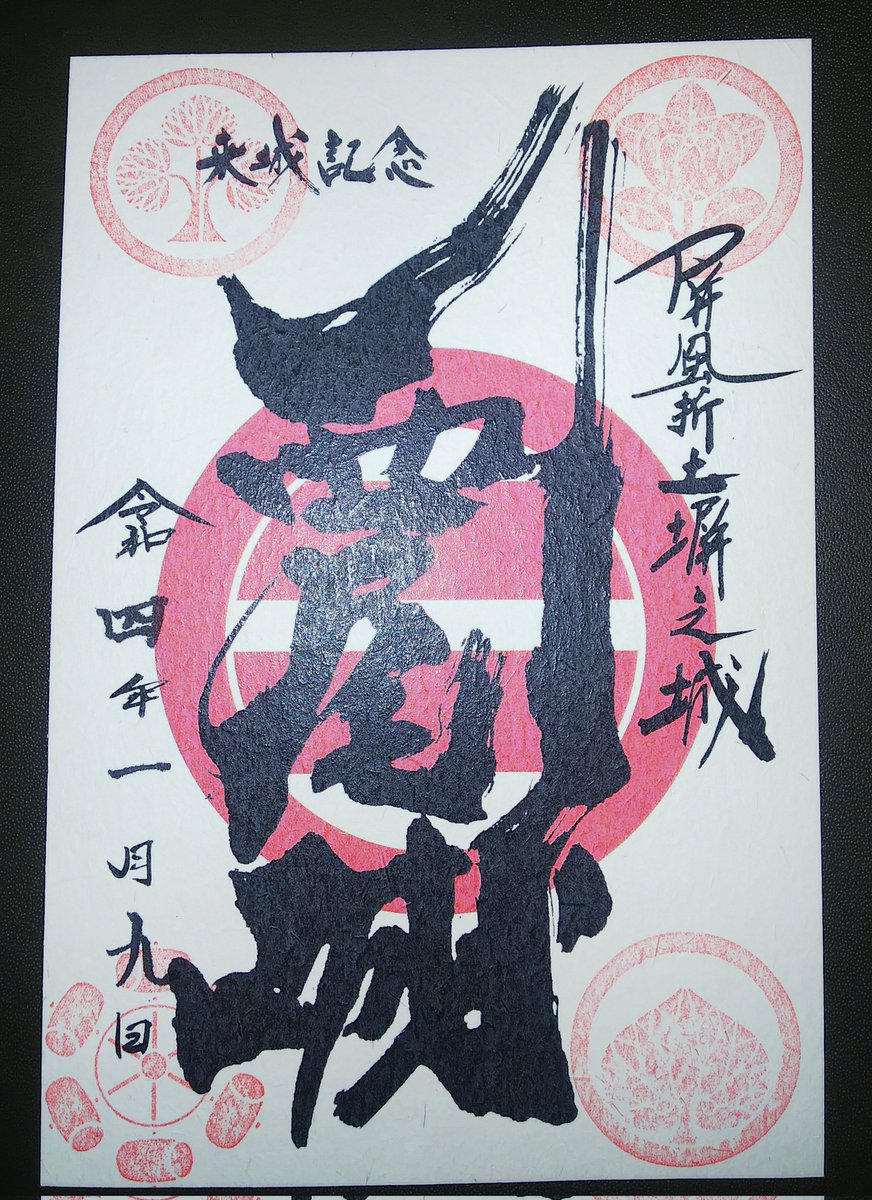 来城記念
屏風折土塀之城
西尾城
令和四年一月九日